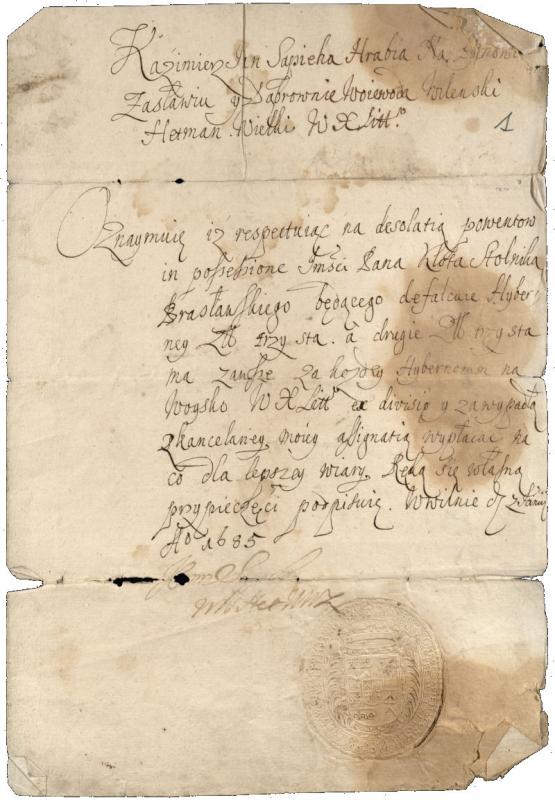 Kazimierz Jan Sapieha Hrabia Na
Zasławiu y Dąbrownie Woiewoda Wilenski
Hetman Wielki W X Littº
1
Oznaymuię iż respectuiąc na desolatią
in possessione Imści Pana Stolnika
Brasławskiego będącego defalcuię Hyber=
ney Zł trzy sta. a drugie Zł trzy sta
ma zawsze za kozdey Hybernown na
Woysko W X Littº ex divisio y zawypadłą
zkancelaryey moiey assignatią wypłacac na
co dla lepszey wiary Ręką się własną
przypieczęci podpisuię. Wwilnie
Aº 1685